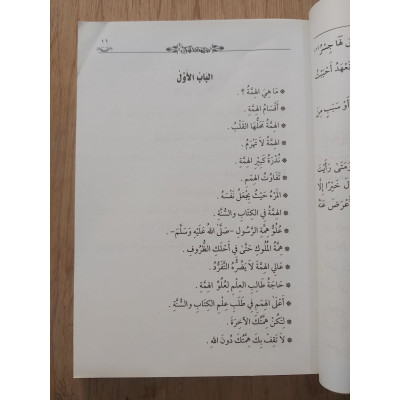 ١١
البَابُ الأَوَّلُ
* مَا هِيَ الهِمَّةُ ؟ .
* أَقْسَامُ الهِمَّةِ .
* الهِمَّةُ مَحَلُّهَا القَلْبُ .
* الهِمَّةُ لاَ تَهْرَمُ .
* نُدْرَةُ كَبِيرِ الهِمَّةِ .
* تَفَاوُتُ الهِمَمِ .
* المَرْءُ حَيْثُ يَجْعَلُ نَفْسَهُ .
* الهِمَّةُ فِي الكِتَابِ وَالسُّنَّةِ .
* عُلُوُّ هِمَّةِ الرَّسُولِ -صَلَّى اللهُ عَلَيْهِ وَسَلَّمَ- .
* هِمَّةُ المُلُوكِ حَتَّى فِي أَحْلَكِ الظُّرُوفِ .
* عَالِي الهِمَّةِ لاَ يَضُرُّهُ التَّفَرُّدُ .
* حَاجَةُ طَالِبِ العِلْمِ لِعُلُوِّ الهِمَّةِ .
* أَعْلَى الهِمَمِ فِي طَلَبِ عِلْمِ الكِتَابِ وَالسُّنَّةِ .
* لِتَكُنْ هِمَّتُكَ الآخِرَةَ .
* لاَ تَقِفْ بِكَ هِمَّتُكَ دُونَ اللهِ .
لَهَا
أَوْ سَبَبٍ
رَأَيْتَ
خَيْرًا إِلَّا
عَنْهُ